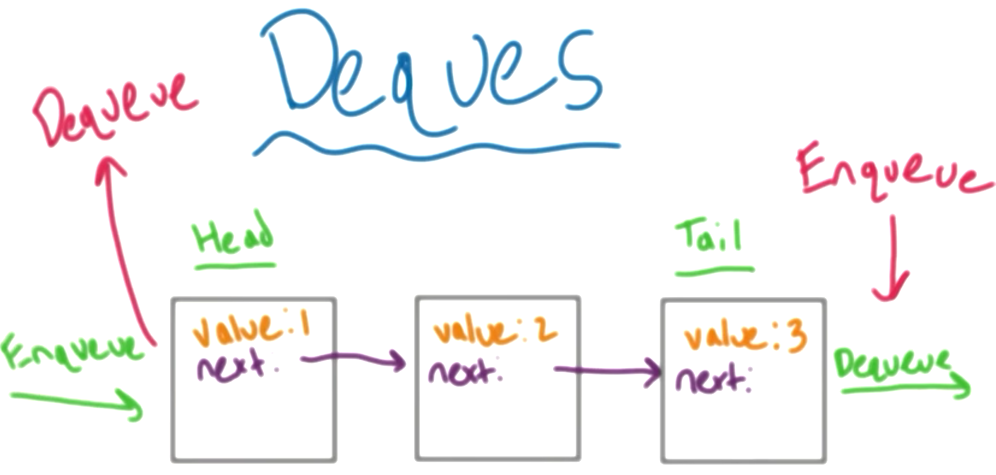 Deques
Dequeue
Enqueue
Head
Tail
Enqueue
value:1
next:
value:2
next:
value:3
next:
Dequeue